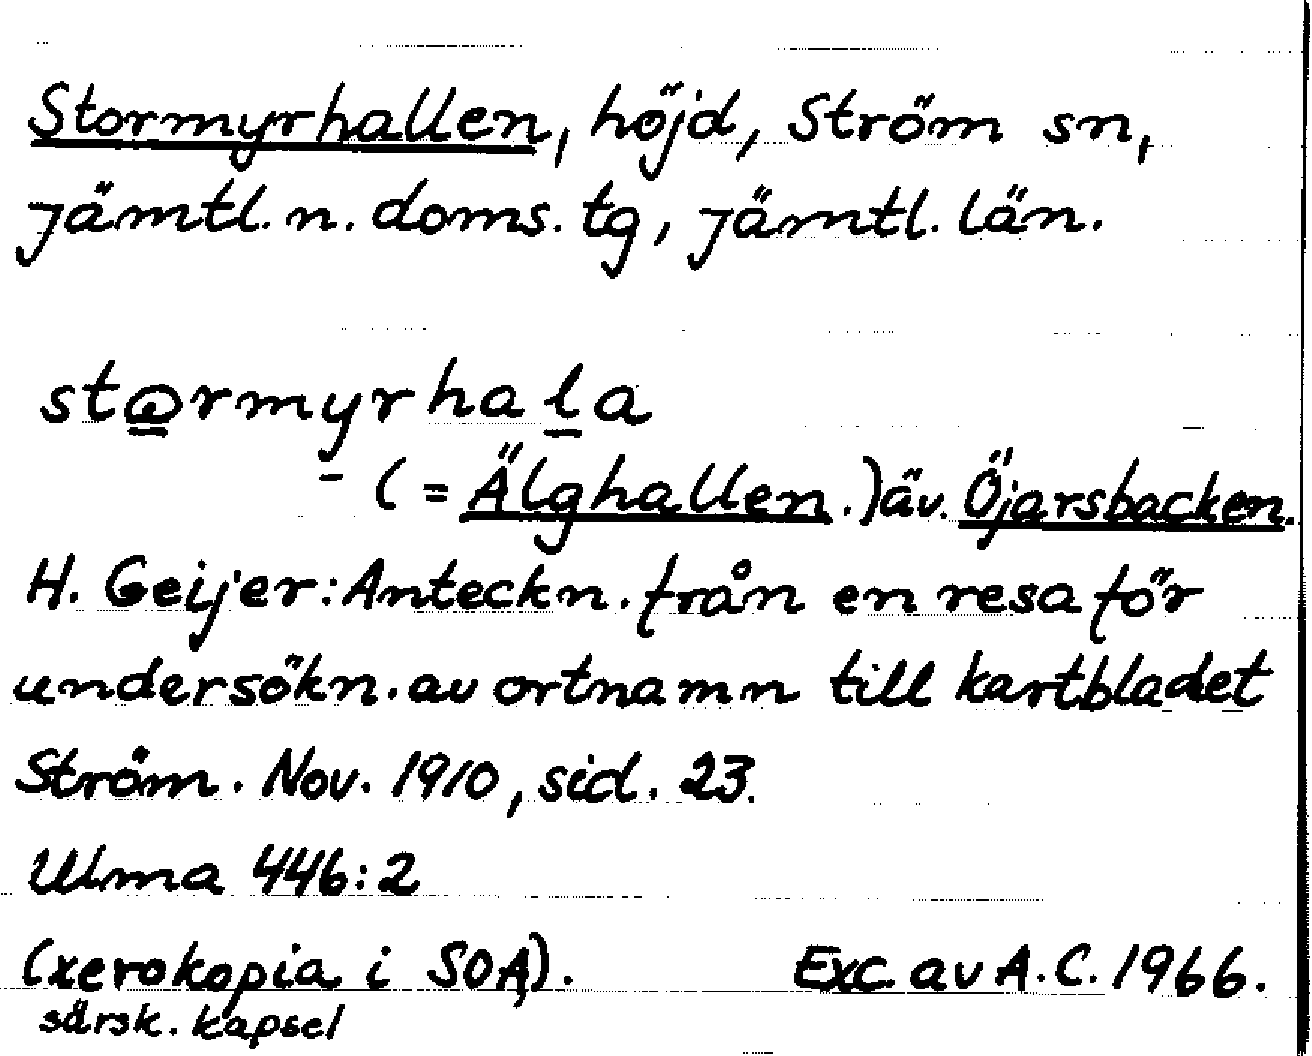 Stormyrhallen, höjd, Ström sn,
Jämtl. n. doms. tg, Jämtl. län.
(= Älghallen.) äv. Öjarsbacken.
H. Geijer: Anteckn. från en resa för
undersökn. av ortnamn till kartbladet
Ström. Nov. 1910, sid. 23.
Ulma 446:2
(xerokopia i SOA). Exc. av A.C. 1966.
särsk. kapsel